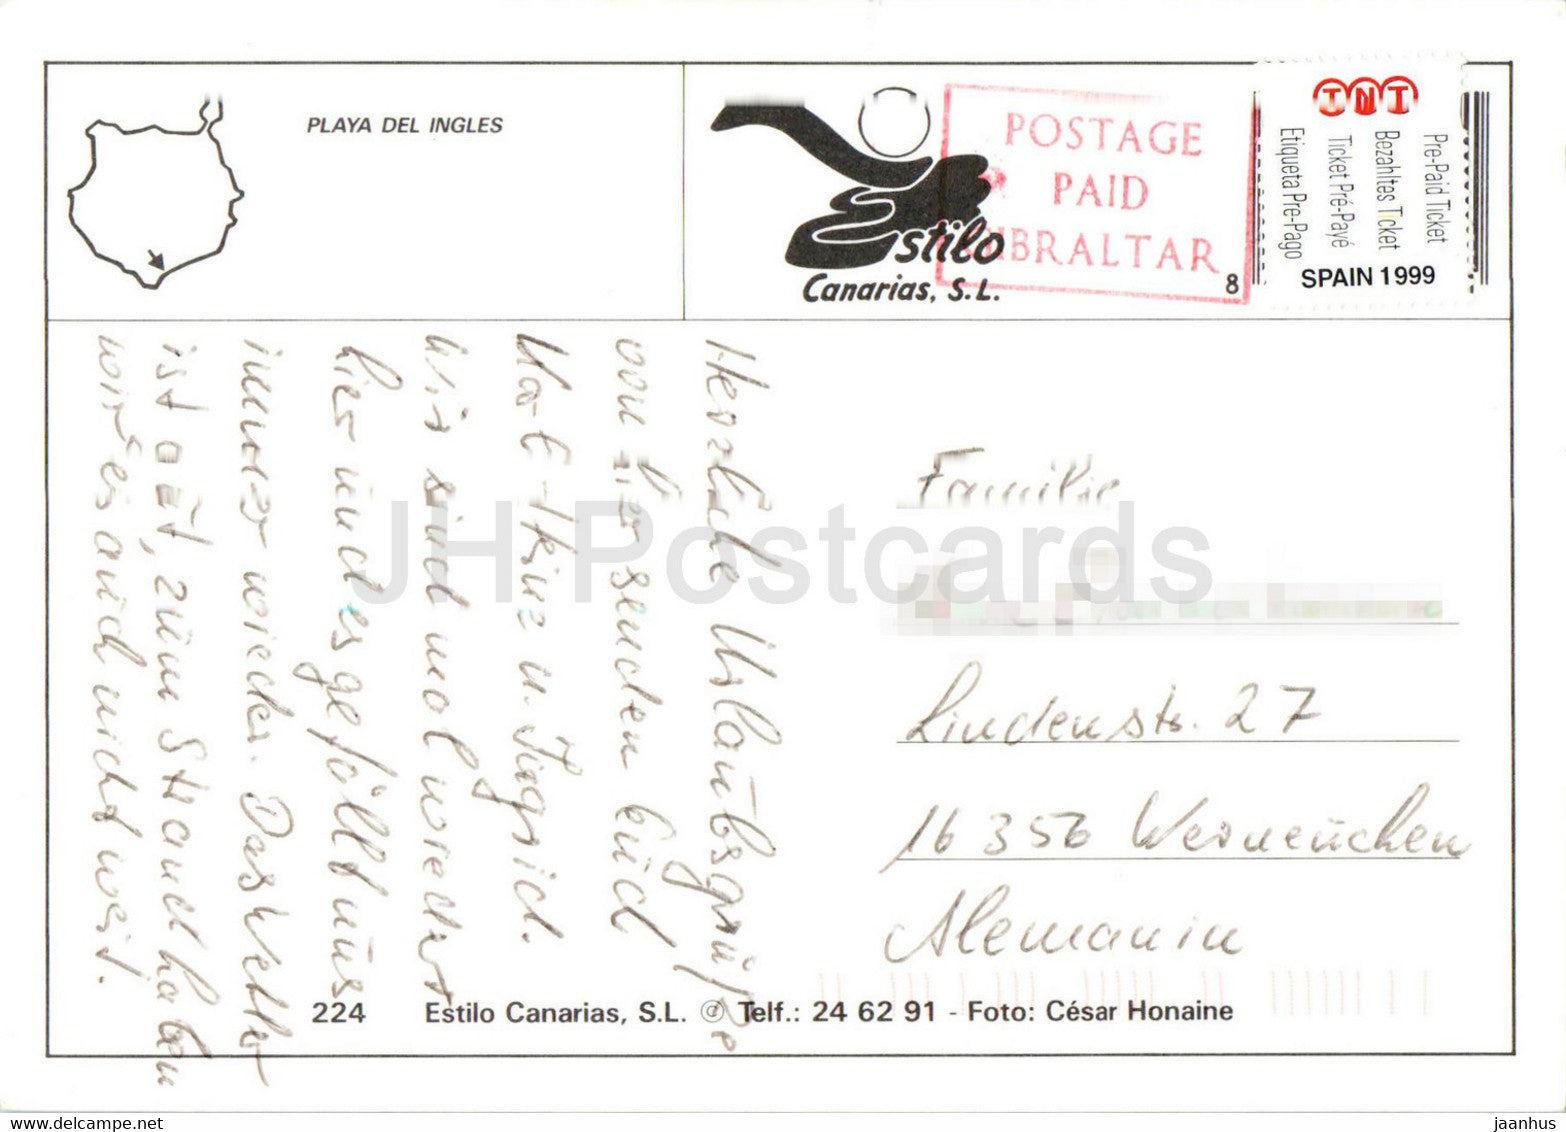 PLAYA DEL INGLES
Estilo
Canarias, S.L.
POSTAGE
PAID
GIBRALTAR
8
TNT
Pre-Paid Ticket
Bezahltes Ticket
Ticket Pré-Payé
Etiqueta Pre-Pago
SPAIN 1999
Herzliche Urlaubsgrüße
von hier senden Euch
Karl-Heinz u. Ingrid.
Wir sind mal wieder
hier und es gefällt uns
immer wieder. Das Wetter
ist gut, zum Strand haben
wir es auch nicht weit.
Familie
Lindenstr. 27
16356 Werneuchen
Alemanin
224 Estilo Canarias, S.L. © Telf.: 24 62 91 - Foto: César Honaine
JH Postcards
www.delcampe.net
jaanhus